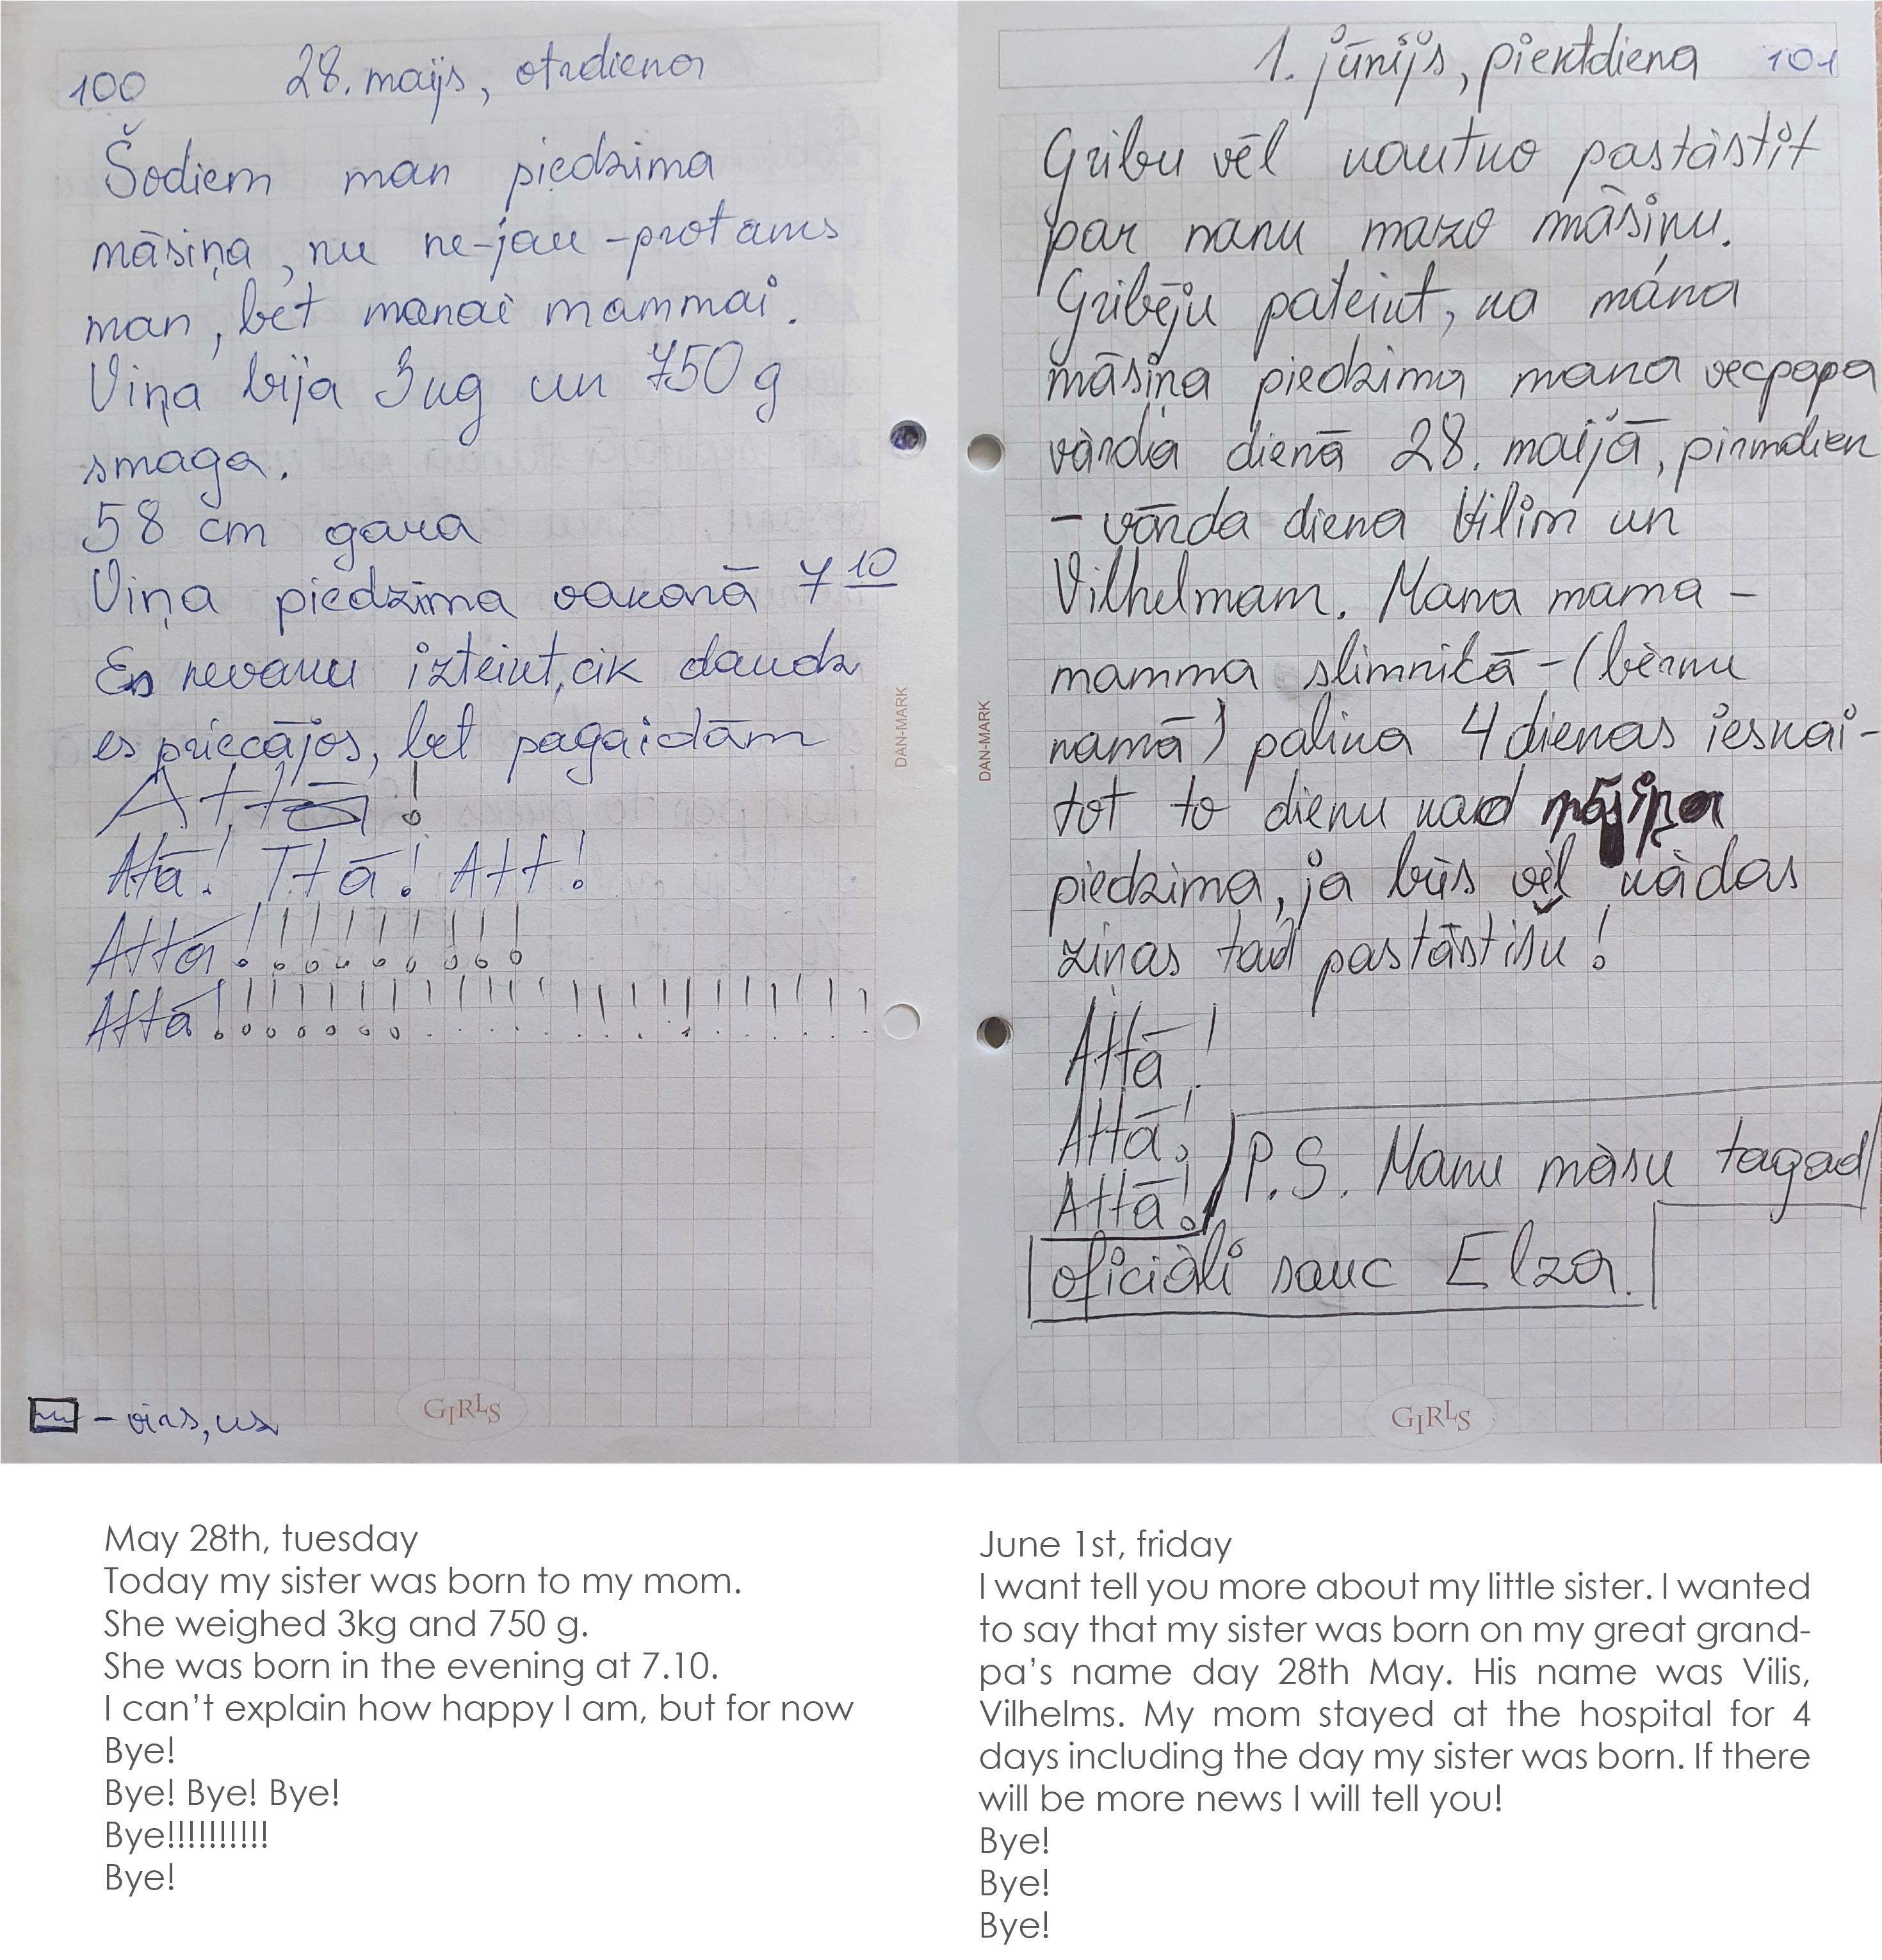 100
28. maijs, otrdiena
Šodiem man piedzima
māsiņa, nu ne-jau-protams
man, bet manai mammai.
Viņa bija 3kg un 750 g
smaga.
58 cm gara
Viņa piedzima vakarā 7 10
Es nevaru izteikt, cik daudz
es priecājos, bet pagaidām
Attā!
Atā! Ttā! Att!
Attā!!!!!!!!!!
Attā!!!!!!!!!!!!!!!!!!!!!!
- virs, us
GIRLS
DAN-MARK
1. jūnijs, piektdiena 101
Gribu vēl kautko pastāstīt
par manu mazo māsiņu.
Gribēju pateikt, ka māna
māsiņa piedzima mana vecpapa
vārda dienā 28. maijā, pirmdien
- vārda diena Vilim un
Vilhelmam. Mana mama -
mamma slimnīcā - (bērnu
namā) palika 4 dienas ieskai-
tot to dienu kad māsiņa
piedzima, ja būs vēl kādas
ziņas tad pastāstīšu!
Attā!
Attā!
Attā!
P.S. Manu māsu tagad
oficiāli sauc Elza.
GIRLS
DAN-MARK
May 28th, tuesday
Today my sister was born to my mom.
She weighed 3kg and 750 g.
She was born in the evening at 7.10.
I can't explain how happy I am, but for now
Bye!
Bye! Bye! Bye!
Bye!!!!!!!!!!
Bye!
June 1st, friday
I want tell you more about my little sister. I wanted
to say that my sister was born on my great grand-
pa's name day 28th May. His name was Vilis,
Vilhelms. My mom stayed at the hospital for 4
days including the day my sister was born. If there
will be more news I will tell you!
Bye!
Bye!
Bye!